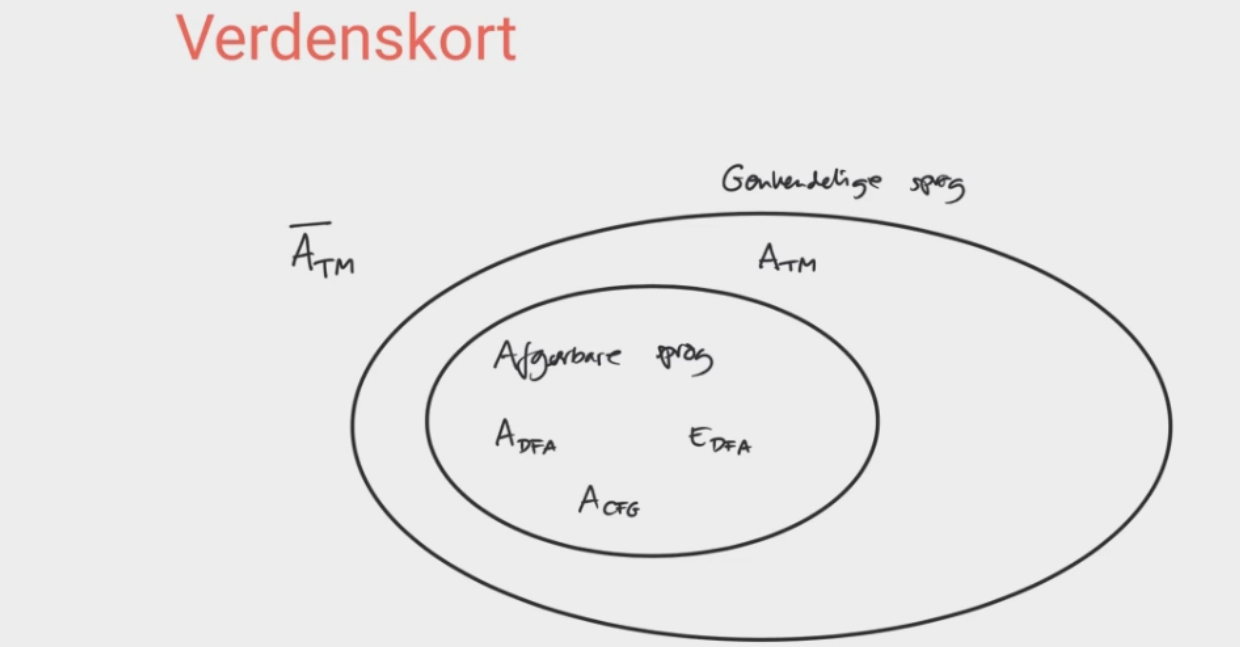 Verdenskort
Genkendelige sprog
A̅_TM
A_TM
Afgørbare sprog
A_DFA E_DFA
A_CFG